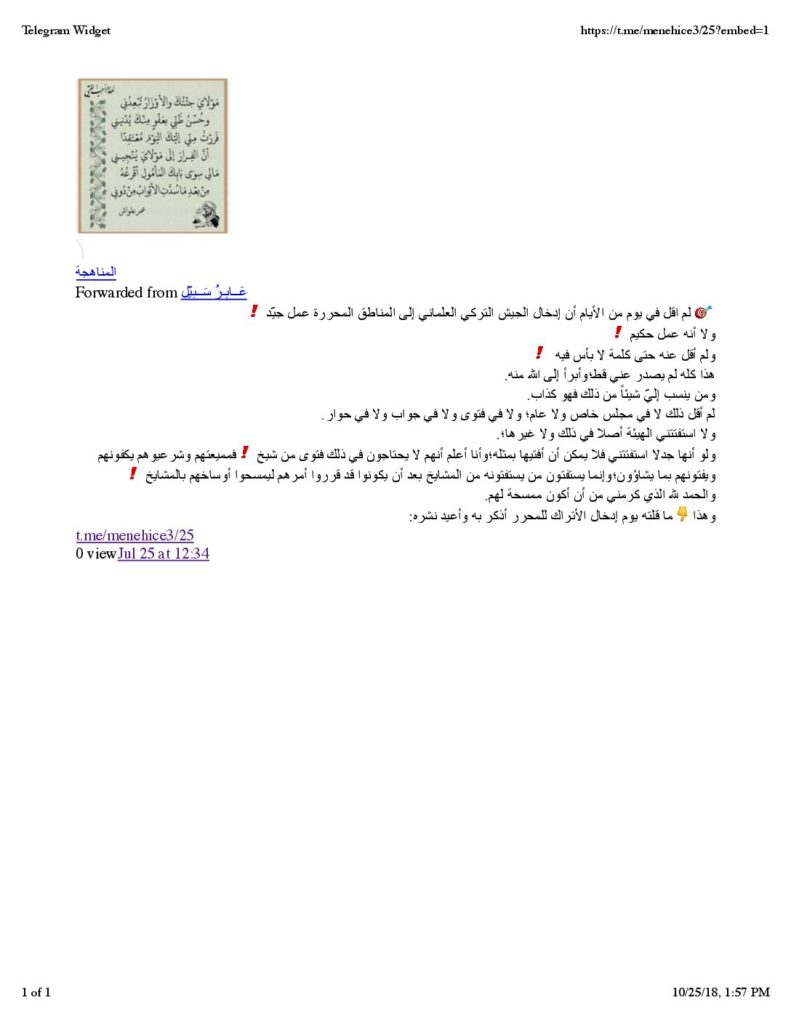 Telegram Widget
https://t.me/menehice3/25?embed=1
مَوْلَايَ جِئْتُكَ والأَوْزَارُ تُبْعِدُنِي
وحُسْنُ ظَنِّي بِعَفْوٍ مِنْكَ يُدْنِينِي
فَرَرْتُ مِنِّي إِلَيْكَ الْيَوْمَ مُعْتَقِدًا
أَنَّ الفِرَارَ إِلَى مَوْلَايَ يُنْجِينِي
مَالِي سِوَى بَابِكَ المَأْمُولِ أَقْرَعُهُ
مِنْ بَعْدِ مَا سُدَّتِ الأَبْوَابُ مِنْ دُونِي
المناهجة
Forwarded from عَـــابِـرُ سَـــبِيْلٍ
🎯 لم اقل في يوم من الأيام أن إدخال الجيش التركي العلماني إلى المناطق المحررة عمل جيّد ❗
ولا أنه عمل حكيم ❗
ولم أقل عنه حتى كلمة لا بأس فيه ❗
هذا كله لم يصدر عني قط؛وأبرأ إلى الله منه.
ومن ينسب إليّ شيئاً من ذلك فهو كذاب.
لم أقل ذلك لا في مجلس خاص ولا عام؛ ولا في فتوى ولا في جواب ولا في حوار.
ولا استفتتني الهيئة أصلا في ذلك ولا غيرها؛.
ولو أنها جدلا استفتتني فلا يمكن أن أفتيها بمثله؛وأنا أعلم أنهم لا يحتاجون في ذلك فتوى من شيخ ❗ فمميعتهم وشرعيوهم يكفونهم
ويفتونهم بما يشاؤون؛وإنما يستفتون من يستفتونه من المشايخ بعد أن يكونوا قد قرروا أمرهم ليمسحوا أوساخهم بالمشايخ ❗
والحمد لله الذي كرمني من أن أكون ممسحة لهم.
وهذا 👇 ما قلته يوم إدخال الأتراك للمحرر أذكر به وأعيد نشره:
t.me/menehice3/25
0 viewJul 25 at 12:34
1 of 1
10/25/18, 1:57 PM